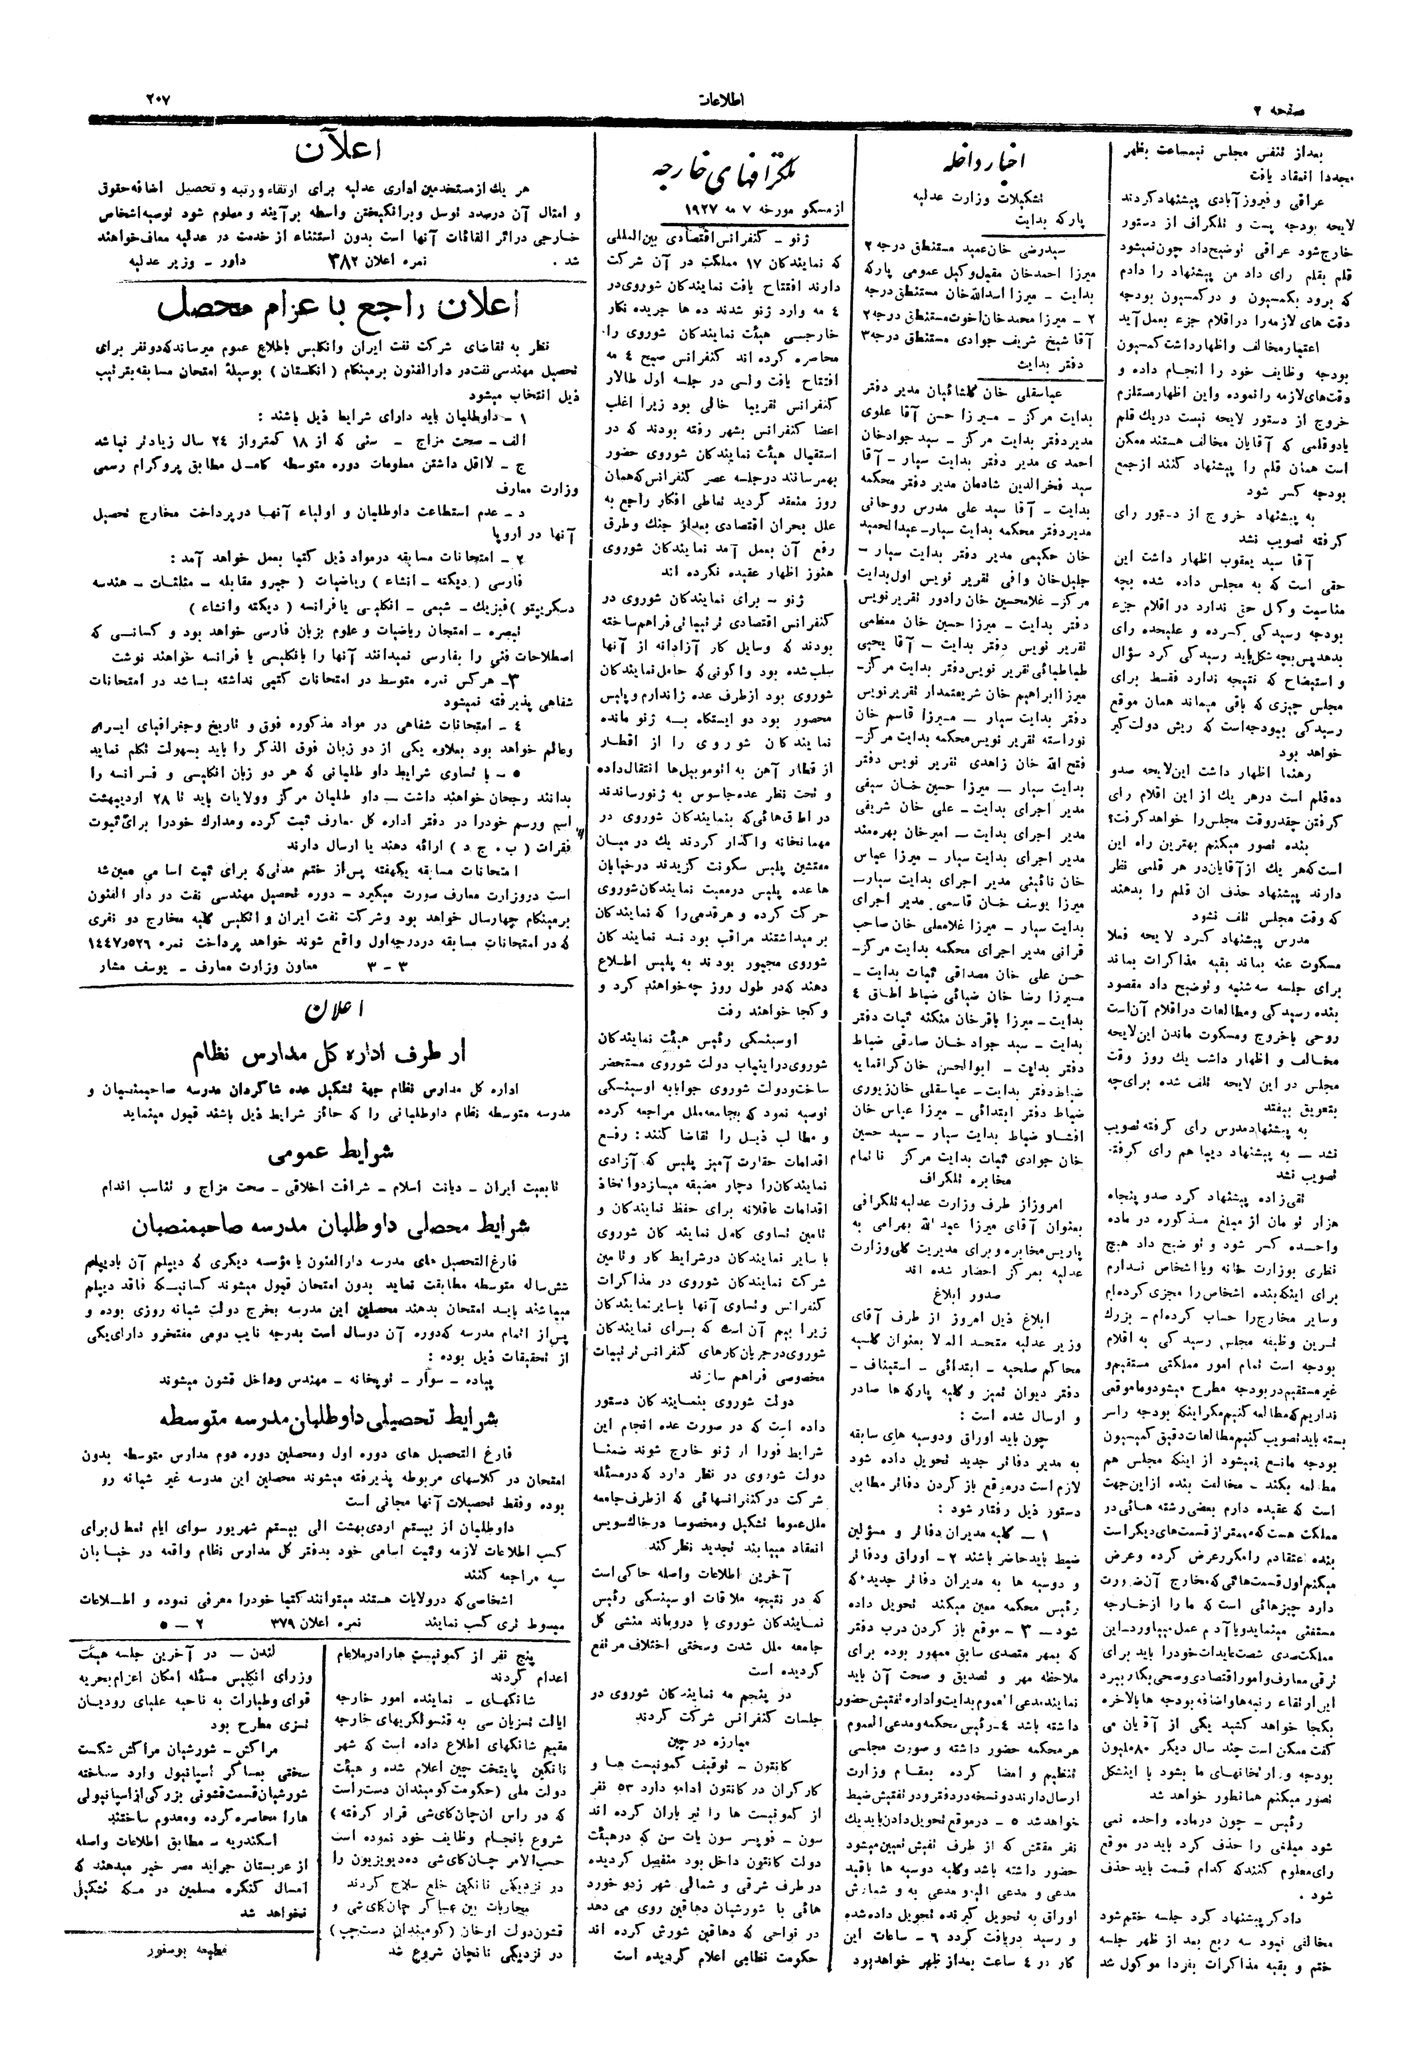 صفحه ۲
اطلاعات
۲۰۷
بعد از تنفس مجلس نیمساعت بظهر
مجددا انعقاد یافت
عراقی و فیروزآبادی پیشنهاد کردند
لایحه بودجه پست و تلگراف از دستور
خارج شود عراقی توضیح داد چون نمیشود
قلم بقلم رای داد من پیشنهاد را دادم
که برود بکمسیون و در کمسیون بودجه
دقت های لازمه را در اقلام جزء بعمل آید
اعتبار مخالف و اظهار داشت کمسیون
بودجه وظایف خود را انجام داده و
دقت های لازمه را نموده و این اظهار مستلزم
خروج از دستور لایحه نیست در یك قلم
یا دو قلمی که آقایان مخالف هستند ممکن
است همان قلم را پیشنهاد کنند از جمع
بودجه کسر شود
به پیشنهاد خروج از دستور رای
گرفته تصویب نشد
آقا سید یعقوب اظهار داشت این
حقی است که به مجلس داده شده بچه
مناسبت وکیل حق ندارد در اقلام جزء
بودجه رسیدگی کرده و علیحده رای
بدهد پس بچه شکل باید رسیدگی کرد سؤال
و استیضاح که نتیجه ندارد فقط برای
مجلس چیزی که باقی میماند همان موقع
رسیدگی ببودجه است که ریش دولت گیر
خواهد بود
رهنما اظهار داشت این لایحه صدو
ده قلم است در هر یك از این اقلام رای
گرفتن چقدر وقت مجلس را خواهد گرفت؟
بنده تصور میکنم بهترین راه این
است که هر یك از آقایان در هر قلمی نظر
دارند پیشنهاد حذف ان قلم را بدهند
که وقت مجلس تلف نشود
مدرس پیشنهاد کرد لایحه فعلا
مسکوت عنه بماند بقیه مذاکرات بماند
برای جلسه سه شنبه و توضیح داد مقصود
بنده رسیدگی و مطالعات در اقلام آن است
روحی با خروج و مسکوت ماندن این لایحه
مخالف و اظهار داشت یك روز وقت
مجلس در این لایحه تلف شده برای چه
بتعویق بیفتد
به پیشنهاد مدرس رای گرفته تصویب
نشد — به پیشنهاد دیبا هم رای گرفته
تصویب نشد
تقی زاده پیشنهاد کرد صدو پنجاه
هزار تومان از مبلغ مذکوره در ماده
واحده کسر شود و توضیح داد هیچ
نظری بوزارت خانه ویا اشخاص ندارم
برای اینکه بنده اشخاص را مجزی کرده ام
و سایر مخارج را حساب کرده ام – بزرك
ترین وظیفه مجلس رسیدگی به اقلام
بودجه است تمام امور مملکتی مستقیم و
غیر مستقیم در بودجه مطرح میشود و ما موقعی
نداریم که مطالعه کنیم مگر اینکه بودجه راسر
بسته باید تصویب کنیم مطالعات دقیق کمیسیون
بودجه مانع نمیشود از اینکه مجلس هم
مطالعه بکند – مخالفت بنده از این جهت
است که عقیده دارم بعضی رشته هائی در
مملکت هست که مهمتر از قسمت های دیگر است
بنده اعتقادم را مکرر عرض کرده و عرض
میکنم اول قسمت هائی که مخارج آن ضرورت
دارد چیز هائی است که ما را از خارجه
مستغنی مینماید و یا آدم عمل میاورد – این
مملکت صدی شصت عایدات خود را باید برای
ترقی معارف و امور اقتصادی و صحی بکار ببرد
این ارتقاء رتبه ها و اضافه بودجه ها بالاخره
بکجا خواهد کشید یکی از آقایان می
گفت ممکن است چند سال دیگر ۸۰ ملیون
بودجه وزارتخانهای ما بشود با اینشکل
تصور میکنم همانطور خواهد شد
رئیس – چون در ماده واحده نمی
شود مبلغی را حذف کرد باید در موقع
رای معلوم کنند که کدام قسمت باید حذف
شود .
دادگر پیشنهاد کرد جلسه ختم شود
مخالفی نبود سه ربع بعد از ظهر جلسه
ختم و بقیه مذاکرات بفردا موکول شد
اخبار داخله
تشکیلات وزارت عدلیه
پارکه بدایت
سیدرضی خان عمید مستنطق درجه ۲
میرزا احمدخان مقبل وکیل عمومی پارکه
بدایت – میرزا اسدالله خان مستنطق درجه
۲ – میرزا محمد خان اخوت مستنطق درجه ۲
آقا شیخ شریف جوادی مستنطق درجه ۳
دفتر بدایت
عباسقلی خان گلشائیان مدیر دفتر
بدایت مرکز – میرزا حسن آقا علوی
مدیر دفتر بدایت مرکز – سید جواد خان
احمدی مدیر دفتر بدایت سیار – آقا
سید فخرالدین شادمان مدیر دفتر محکمه
بدایت – آقا سید علی مدرس روحانی
مدیر دفتر محکمه بدایت سیار – عبدالحمید
خان حکیمی مدیر دفتر بدایت سیار –
جلیل خان وافی تقریر نویس اول بدایت
مرکز – غلامحسین خان رادور تقریر نویس
دفتر بدایت – میرزا حسین خان معظمی
تقریر نویس دفتر بدایت – آقا یحیی
طباطبائی تقریر نویس دفتر بدایت مرکز –
میرزا ابراهیم خان شریعتمدار تقریر نویس
دفتر بدایت سیار – میرزا قاسم خان
نوراسته تقریر نویس محکمه بدایت مرکز –
فتح الله خان زاهدی تقریر نویس دفتر
بدایت سیار – میرزا حسین خان سیفی
مدیر اجرای بدایت – علی خان شریفی
مدیر اجرای بدایت – امیرخان بهره مند
مدیر اجرای بدایت سیار – میرزا عباس
خان نائینی مدیر اجرای بدایت سیار –
میرزا یوسف خان قاسمی مدیر اجرای
بدایت سیار – میرزا غلامعلی خان صاحب
قرانی مدیر اجرای محکمه بدایت مرکز –
حسن علی خان مصداقی ثبات بدایت –
میرزا رضا خان ضیائی ضباط اطاق ٤
بدایت – میرزا باقر خان منکنه ثبات دفتر
بدایت – سید جواد خان صادقی ضباط
دفتر بدایت – ابوالحسن خان گرانمایه
ضباط دفتر بدایت – عباسقلی خان زیوری
ضباط دفتر ابتدائی – میرزا عباس خان
افشار ضباط بدایت سیار – سید حسین
خان جوادی ثبات بدایت مرکز ناتمام
مخابره تلگراف
امروز از طرف وزارت عدلیه تلگرافی
بعنوان آقای میرزا عبدالله بهرامی به
پاریس مخابره و برای مدیریت کل وزارت
عدلیه بمرکز احضار شده اند
صدور ابلاغ
ابلاغ ذیل امروز از طرف آقای
وزیر عدلیه متحد المآل بعنوان کلیه
محاکم صلحیه – ابتدائی – استیناف –
دفتر دیوان تمیز و کلیه پارکه ها صادر
و ارسال شده است :
چون باید اوراق و دوسیه های سابقه
به مدیر دفاتر جدید تحویل داده شود
لازم است در موقع باز کردن دفاتر مطابق
دستور ذیل رفتار شود :
۱ – کلیه مدیران دفاتر و مسؤلین
ضبط باید حاضر باشند ۲ – اوراق و دفاتر
و دوسیه ها به مدیران دفاتر جدید که
رئیس محکمه معین میکند تحویل داده
شود – ۳ – موقع باز کردن درب دفتر
که بمهر متصدی سابق ممهور بوده برای
ملاحظه مهر و تصدیق و صحت آن باید
نماینده مدعی العموم بدایت و اداره تفتیش حضور
داشته باشد ٤ – رئیس محکمه و مدعی العموم
هر محکمه حضور داشته و صورت مجلسی
تنظیم و امضا کرده بمقام وزارت
ارسال دارند دو نسخه در دفتر و در تفتیش ضبط
خواهد شد ٥ – در موقع تحویل دادن باید یك
نفر مفتش که از طرف تفتیش تعیین میشود
حضور داشته باشد و کلیه دوسیه ها باقید
مدعی و مدعی الیه و مدعی به و شمارش
اوراق به تحویل گیرنده تحویل داده شده
و رسید دریافت گردد ٦ – ساعات این
کار در ٤ ساعت بعد از ظهر خواهد بود
تلگرافهای خارجه
از مسکو مورخه ۷ مه ۱۹۲۷
ژنو – کنفرانس اقتصادی بین المللی
که نمایندگان ۱۷ مملکت در آن شرکت
دارند افتتاح یافت نمایندگان شوروی در
٤ مه وارد ژنو شدند ده ها جریده نگار
خارجی هیئت نمایندگان شوروی را
محاصره کرده اند کنفرانس صبح ٤ مه
افتتاح یافت ولی در جلسه اول طالار
کنفرانس تقریبا خالی بود زیرا اغلب
اعضا کنفرانس بشهر رفته بودند که در
استقبال هیئت نمایندگان شوروی حضور
بهمرسانند در جلسه عصر کنفرانس که همان
روز منعقد گردید تعاطی افکار راجع به
علل بحران اقتصادی بعد از جنك و طرق
رفع آن بعمل آمد نمایندگان شوروی
هنوز اظهار عقیده نکرده اند
ژنو – برای نمایندگان شوروی در
کنفرانس اقتصادی ترتیباتی فراهم ساخته
بودند که وسایل کار آزادانه از آنها
سلب شده بود واگونی که حامل نمایندگان
شوروی بود از طرف عده ژاندارم و پلیس
محصور بود دو ایستگاه به ژنو مانده
نمایندگان شوروی را از اقطار
از قطار آهن به اتوموبیل ها انتقال داده
و تحت نظر عده جاسوس به ژنو رساندند
در اطاق هائی که بنمایندگان شوروی در
مهمانخانه واگذار کردند یك در میان
مفتشین پلیس سکونت گزیدند در خیابان
ها عده پلیس در معیت نمایندگان شوروی
حرکت کرده و هر قدمی را که نمایندگان
بر میداشتند مراقب بودند نمایندگان
شوروی مجبور بودند به پلیس اطلاع
دهند که در طول روز چه خواهند کرد و
و کجا خواهند رفت
اوسینسکی رئیس هیئت نمایندگان
شوروی در اینباب دولت شوروی مستحضر
ساخت و دولت شوروی جوابا به اوسینسکی
توصیه نمود که بجامعه ملل مراجعه کرده
و مطالب ذیل را تقاضا کنند : رفع
اقدامات حقارت آمیز پلیس که آزادی
نمایندگان را دچار مضیقه میسازد و اتخاذ
اقدامات عاقلانه برای حفظ نمایندگان و
تامین تساوی کامل نمایندگان شوروی
با سایر نمایندگان در شرایط کار و تامین
شرکت نمایندگان شوروی در مذاکرات
کنفرانس و تساوی آنها با سایر نمایندگان
زیرا بیم آن است که برای نمایندگان
شوروی در جریان کار های کنفرانس ترتیبات
مخصوصی فراهم سازند
دولت شوروی بنمایندگان دستور
داده است که در صورت عدم انجام این
شرایط فورا از ژنو خارج شوند ضمنا
دولت شوروی در نظر دارد که در مسئله
شرکت در کنفرانسهائی که از طرف جامعه
ملل عموما تشکیل و مخصوصا در خاك سویس
انعقاد مییابند تجدید نظر کند
آخرین اطلاعات واصله حاکی است
که در نتیجه ملاقات اوسینسکی رئیس
نمایندگان شوروی با دروماند منشی کل
جامعه ملل شدت و سختی اختلاف مرتفع
گردیده است
در پنجم مه نمایندگان شوروی در
جلسات کنفرانس شرکت کردند
مبارزه در چین
کانتون – توقیف کمونیست ها و
کارگران در کانتون ادامه دارد ٥۳ نفر
از کمونیست ها را تیر باران کرده اند
سون – فویسر سون یات سن که در هیئت
دولت کانتون داخل بود منفصل گردیده
در طرف شرقی و شمالی شهر زدو خورد
هائی با شورشیان دهاقین روی می دهد
در نواحی که دهاقین شورش کرده اند
حکومت نظامی اعلام گردیده است
اعلان
هر یك از مستخدمین اداری عدلیه برای ارتقاء رتبه و تحصیل اضافه حقوق
و امثال آن درصدد توسل و برانگیختن واسطه برآیند و معلوم شود توصیه اشخاص
خارجی در اثر القائات آنها است بدون استثناء از خدمت در عدلیه معاف خواهند
شد . نمره اعلان ۳۸۲ داور – وزیر عدلیه
اعلان راجع باعزام محصل
نظر به تقاضای شرکت نفت ایران و انگلیس باطلاع عموم میرساند که دو نفر برای
تحصیل مهندسی نفت در دارالفنون برمینگام ( انگلستان ) بوسیلهٔ امتحان مسابقه بترتیب
ذیل انتخاب میشود
۱ – داوطلبان باید دارای شرایط ذیل باشند :
الف – صحت مزاج – سنی که از ۱۸ کمتر و از ۲٤ سال زیادتر نباشد
ج – لااقل داشتن معلومات دوره متوسطه کامل مطابق پروگرام رسمی
وزارت معارف
د – عدم استطاعت داوطلبان و اولیاء آنها در پرداخت مخارج تحصیل
آنها در اروپا
۲ – امتحانات مسابقه در مواد ذیل کتبا بعمل خواهد آمد :
فارسی ( دیکته – انشاء ) ریاضیات ( جبر و مقابله – مثلثات – هندسه
دسکریپتو ) فیزیك – شیمی – انگلیسی یا فرانسه ( دیکته و انشاء )
تبصره – امتحان ریاضیات و علوم بزبان فارسی خواهد بود و کسانی که
اصطلاحات فنی را بفارسی نمیدانند آنها را بانگلیسی یا فرانسه خواهند نوشت
۳ – هرکس نمره متوسط در امتحانات کتبی نداشته باشد در امتحانات
شفاهی پذیرفته نمیشود
٤ – امتحانات شفاهی در مواد مذکوره فوق و تاریخ و جغرافیای ایران
و عالم خواهد بود بعلاوه یکی از دو زبان فوق الذکر را باید بسهولت تکلم نماید
٥ – با تساوی شرایط داوطلبانی که هر دو زبان انگلیسی و فرانسه را
بدانند رجحان خواهند داشت – داوطلبان مرکز و ولایات باید تا ۲۸ اردیبهشت
اسم و رسم خود را در دفتر اداره کل معارف ثبت کرده و مدارك خود را برای ثبوت
فقرات ( ب . ج د ) ارائه دهند یا ارسال دارند
امتحانات مسابقه یکهفته پس از ختم مدتی که برای ثبت اسامی معین شده
است در وزارت معارف صورت میگیرد – دوره تحصیل مهندسی نفت در دار الفنون
برمینگام چهار سال خواهد بود و شرکت نفت ایران و انگلیس کلیه مخارج دو نفری
که در امتحانات مسابقه در درجه اول واقع شوند خواهد پرداخت نمره ۱٤٤۷٫٥۲٦
۳ – ۳ معاون وزارت معارف – یوسف مشار
اعلان
از طرف اداره کل مدارس نظام
اداره کل مدارس نظام جهة تشکیل عده شاگردان مدرسه صاحبمنصبان و
مدرسه متوسطه نظام داوطلبانی را که حائز شرایط ذیل باشند قبول مینماید
شرایط عمومی
تابعیت ایران – دیانت اسلام – شرافت اخلاقی – صحت مزاج و تناسب اندام
شرایط محصلی داوطلبان مدرسه صاحبمنصبان
فارغ التحصیل های مدرسه دارالفنون یا مؤسسه دیگری که دیپلم آن بادیپلم
شش ساله متوسطه مطابقت نماید بدون امتحان قبول میشوند کسانیکه فاقد دیپلم
میباشند باید امتحان بدهند محصلین این مدرسه بخرج دولت شبانه روزی بوده و
پس از اتمام مدرسه که دوره آن دوسال است بدرجه نایب دومی مفتخر و دارای یکی
از تحقیقات ذیل بوده :
پیاده – سوار – توپخانه – مهندس و داخل قشون میشوند
شرایط تحصیلی داوطلبان مدرسه متوسطه
فارغ التحصیل های دوره اول و محصلین دوره دوم مدارس متوسطه بدون
امتحان در کلاسهای مربوطه پذیرفته میشوند محصلین این مدرسه غیر شبانه رو
بوده و فقط تحصیلات آنها مجانی است
داوطلبان از بیستم اردی بهشت الی بیستم شهریور سوای ایام تعطیل برای
کسب اطلاعات لازمه و ثبت اسامی خود بدفتر کل مدارس نظام واقعه در خیابان
سپه مراجعه کنند
اشخاصی که در ولایات هستند میتوانند کتبا خود را معرفی نموده و اطلاعات
مبسوط تری کسب نمایند نمره اعلان ۳۷۹ ۲ – ٥
پنج نفر از کمونیست ها را در ملاء عام
اعدام کردند
شانگهای – نماینده امور خارجه
ایالت تسزیان سی به قنسولگریهای خارجه
مقیم شانگهای اطلاع داده است که شهر
نانکین پایتخت چین اعلام شده و هیئت
دولت ملی ( حکومت کومیندان دست راست
که در راس ان چان کای شی قرار گرفته )
شروع بانجام وظایف خود نموده است
حسب الامر چان کای شی ده دیویزیون را
در نزدیکی نانکین خلع سلاح کردند
محاربات بین عساکر چان کای شی و
قشون دولت اوخان ( کومیندان دست چپ )
در نزدیکی نانچان شروع شد
لندن – در آخرین جلسه هیئت
وزرای انگلیس مسئله امکان اعزام بحریه
قوای و طیارات به ناحیه علیای رود یان
تسزی مطرح بود
مراکش – شورشیان مراکش شکست
سختی بعساکر اسپانیول وارد ساخته
شورشیان قسمت قشونی بزرگی از اسپانیولی
ها را محاصره کرده و معدوم ساختند
اسکندریه – مطابق اطلاعات واصله
از عربستان جراید مصر خبر میدهند که
امسال کنگره مسلمین در مکه تشکیل
نخواهد شد
مطبعه بوسفور